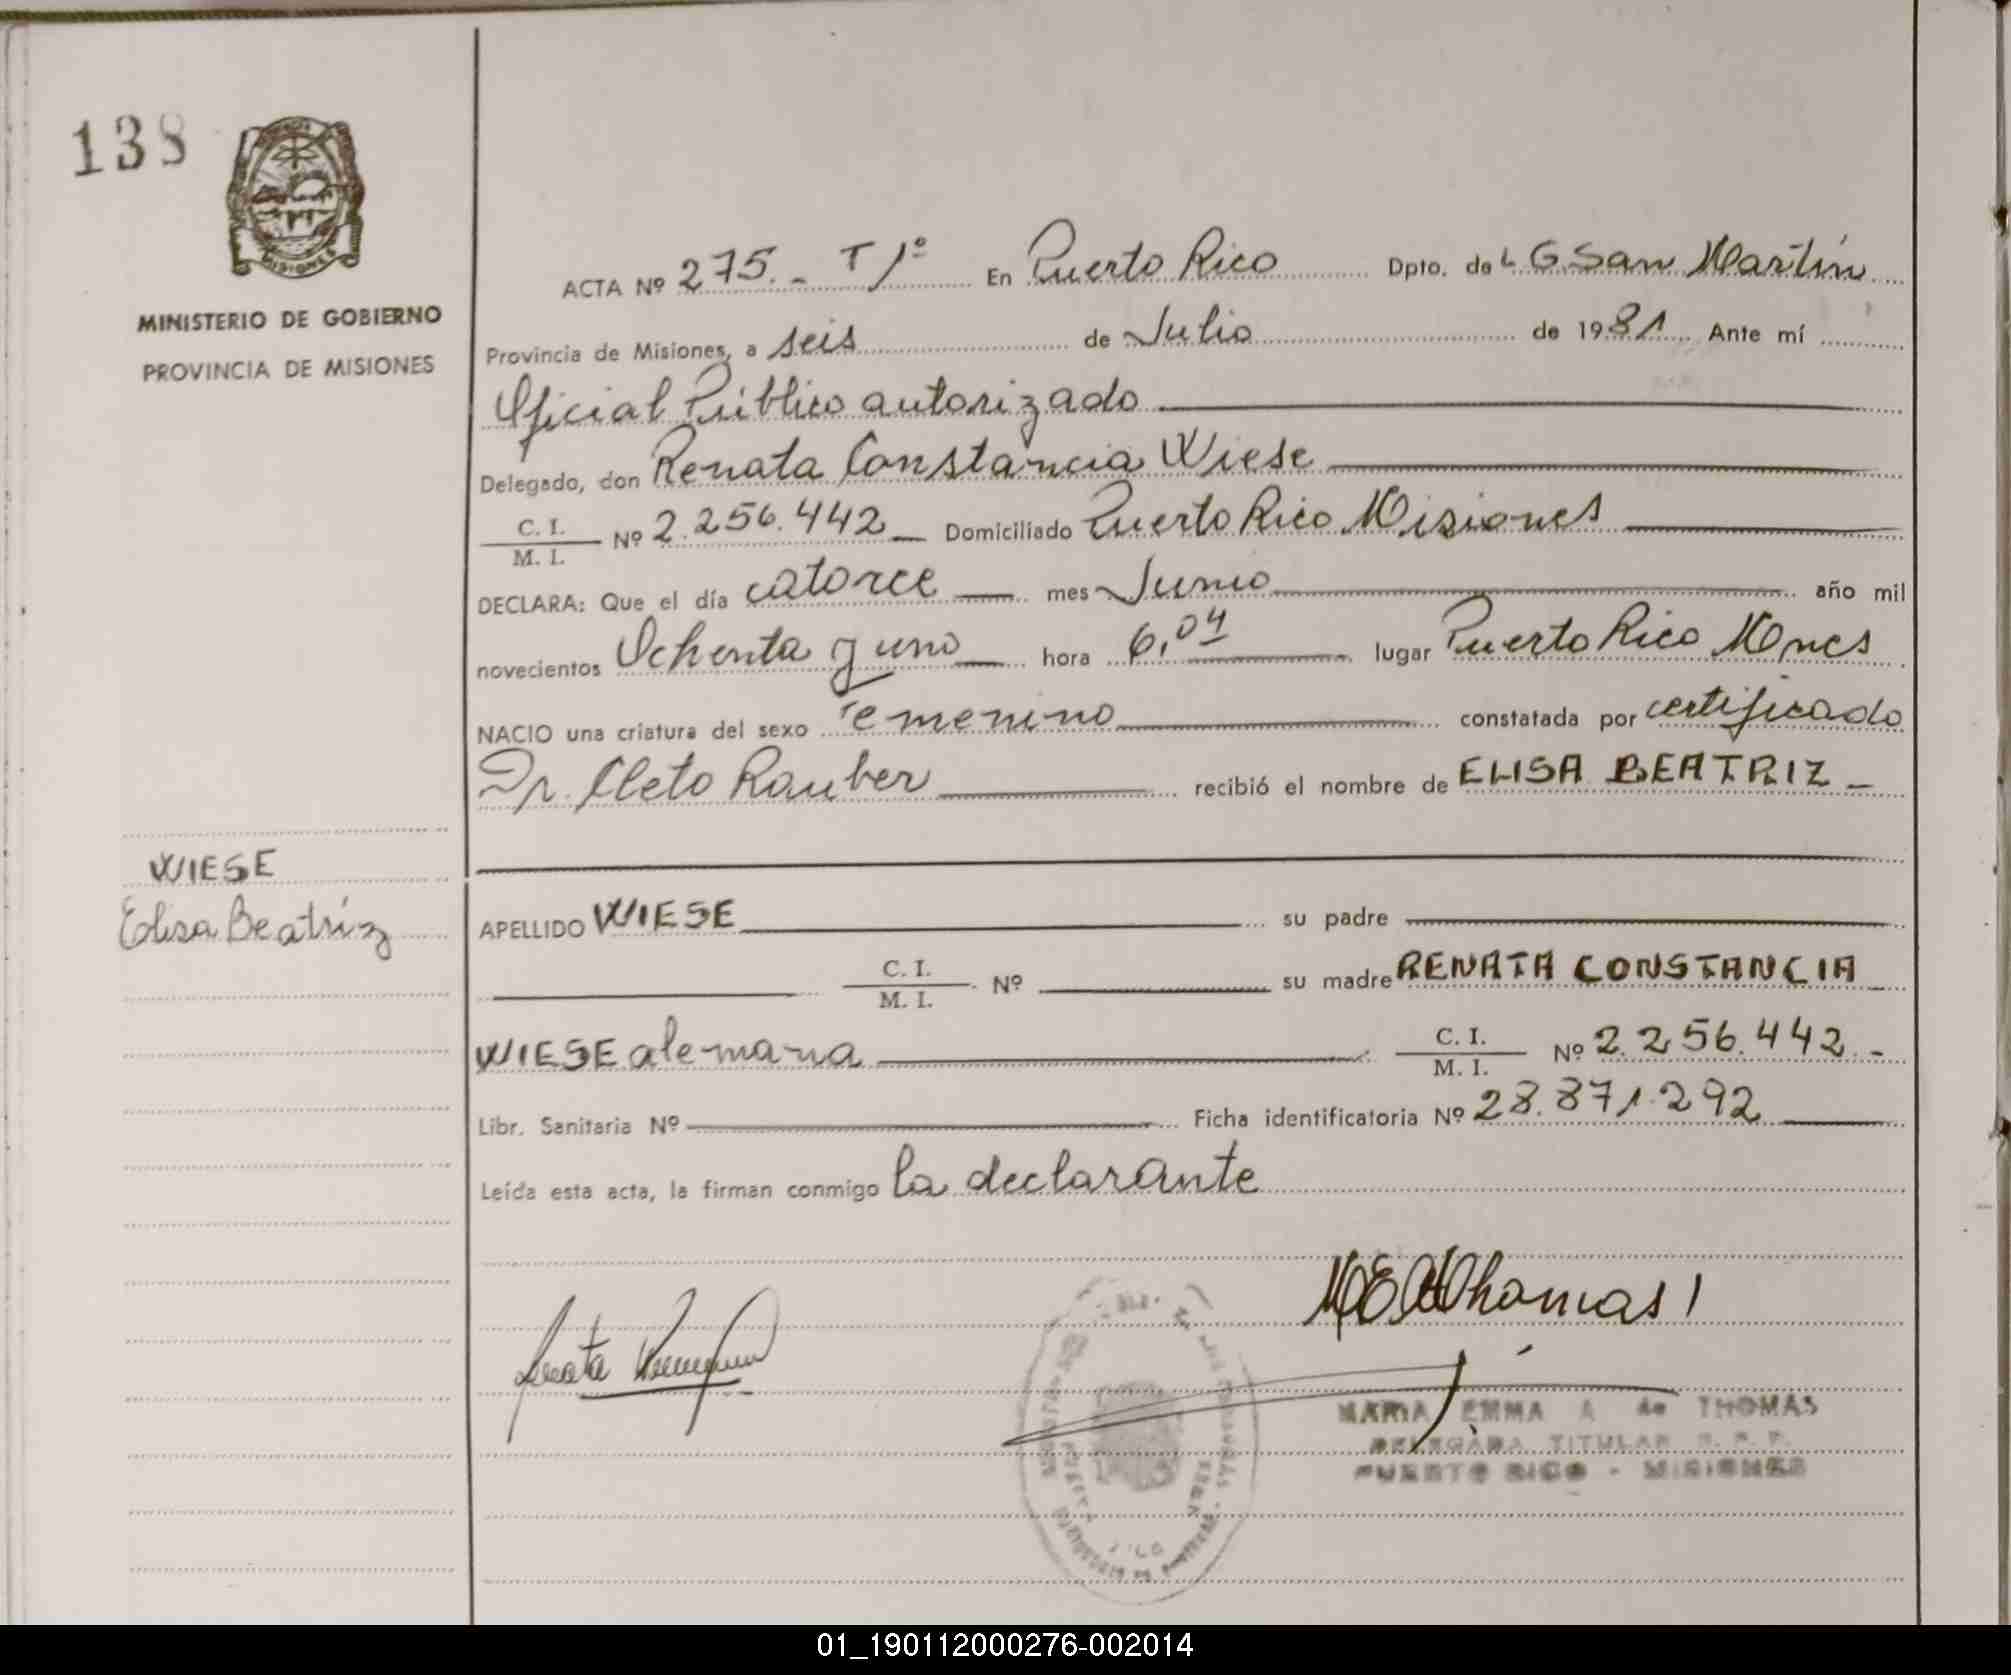 138
MISIONES
MINISTERIO DE GOBIERNO
PROVINCIA DE MISIONES
WIESE
Elisa Beatriz
ACTA Nº 275.- T 1º En Puerto Rico Dpto. de L G. San Martín
Provincia de Misiones, a seis de Julio de 1981 Ante mí
Oficial Público autorizado
Delegado, don Renata Constancia Wiese
C. I.
M. I.
Nº 2.256.442 Domiciliado Puerto Rico Misiones
DECLARA: Que el día catorce mes Junio año mil
novecientos Ochenta y uno hora 6,04 lugar Puerto Rico Mnes
NACIO una criatura del sexo Femenino constatada por certificado
Dr. Cleto Rauber recibió el nombre de ELISA BEATRIZ
APELLIDO WIESE su padre
C. I.
M. I.
Nº su madre RENATA CONSTANCIA
WIESE alemana
C. I.
M. I.
Nº 2.256.442.-
Libr. Sanitaria Nº Ficha identificatoria Nº 28.871.292
Leída esta acta, la firman conmigo la declarante
Renata
MEA Thomas
MARIA EMMA A de THOMAS
DELEGADA TITULAR R. P. P.
PUERTO RICO - MISIONES
01_190112000276-002014